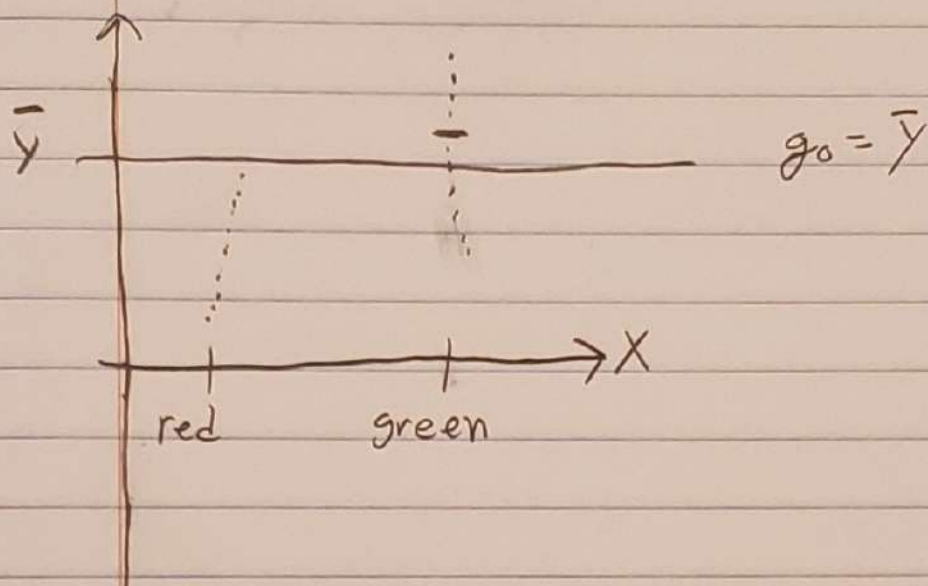 ȳ
g₀ = ȳ
X
red green